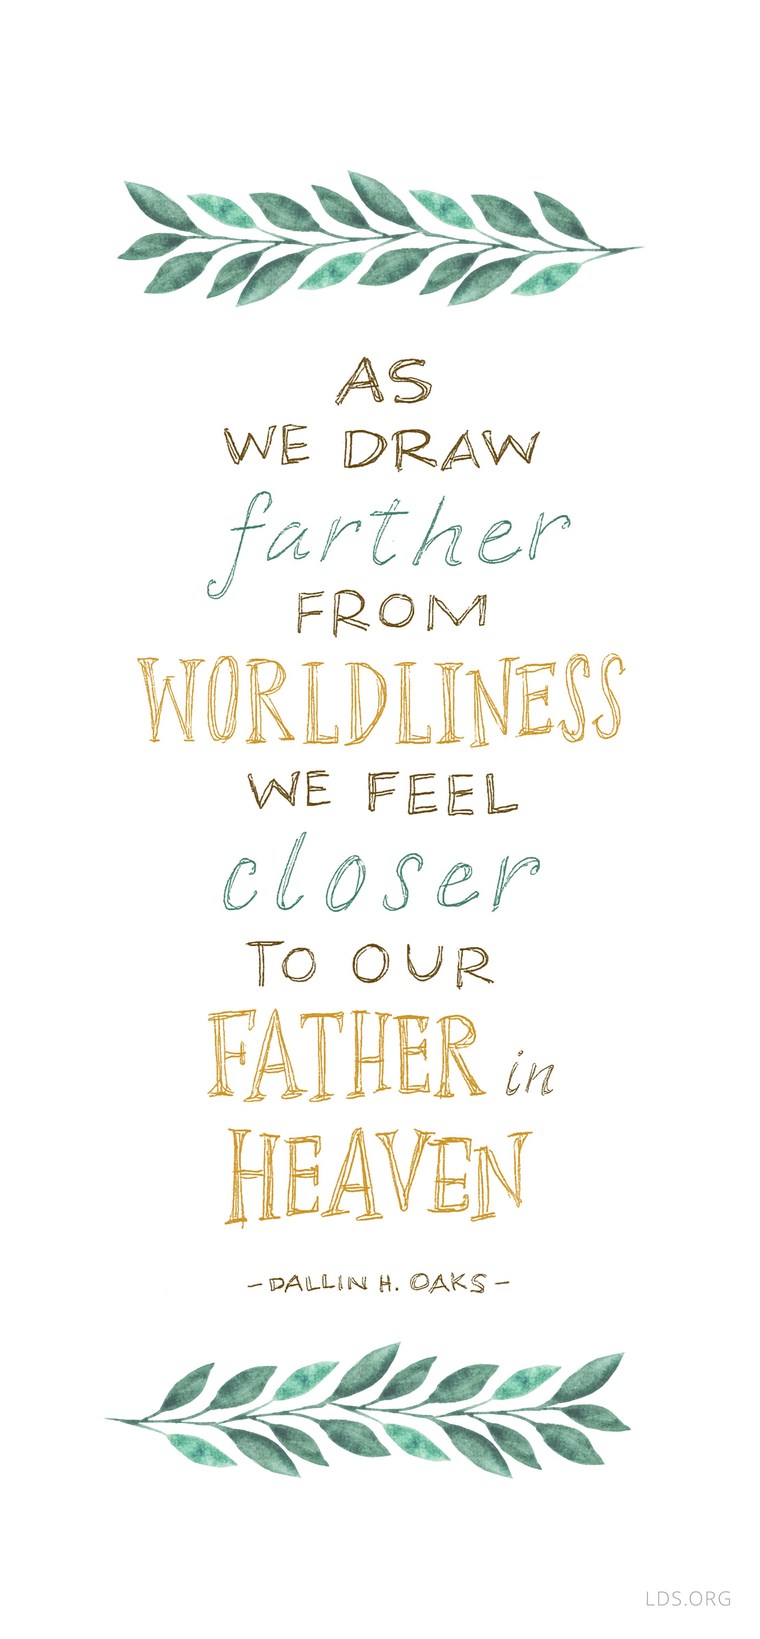 AS
WE DRAW
farther
FROM
WORLDLINESS
WE FEEL
closer
TO OUR
FATHER in
HEAVEN
-DALLIN H. OAKS-
LDS.ORG